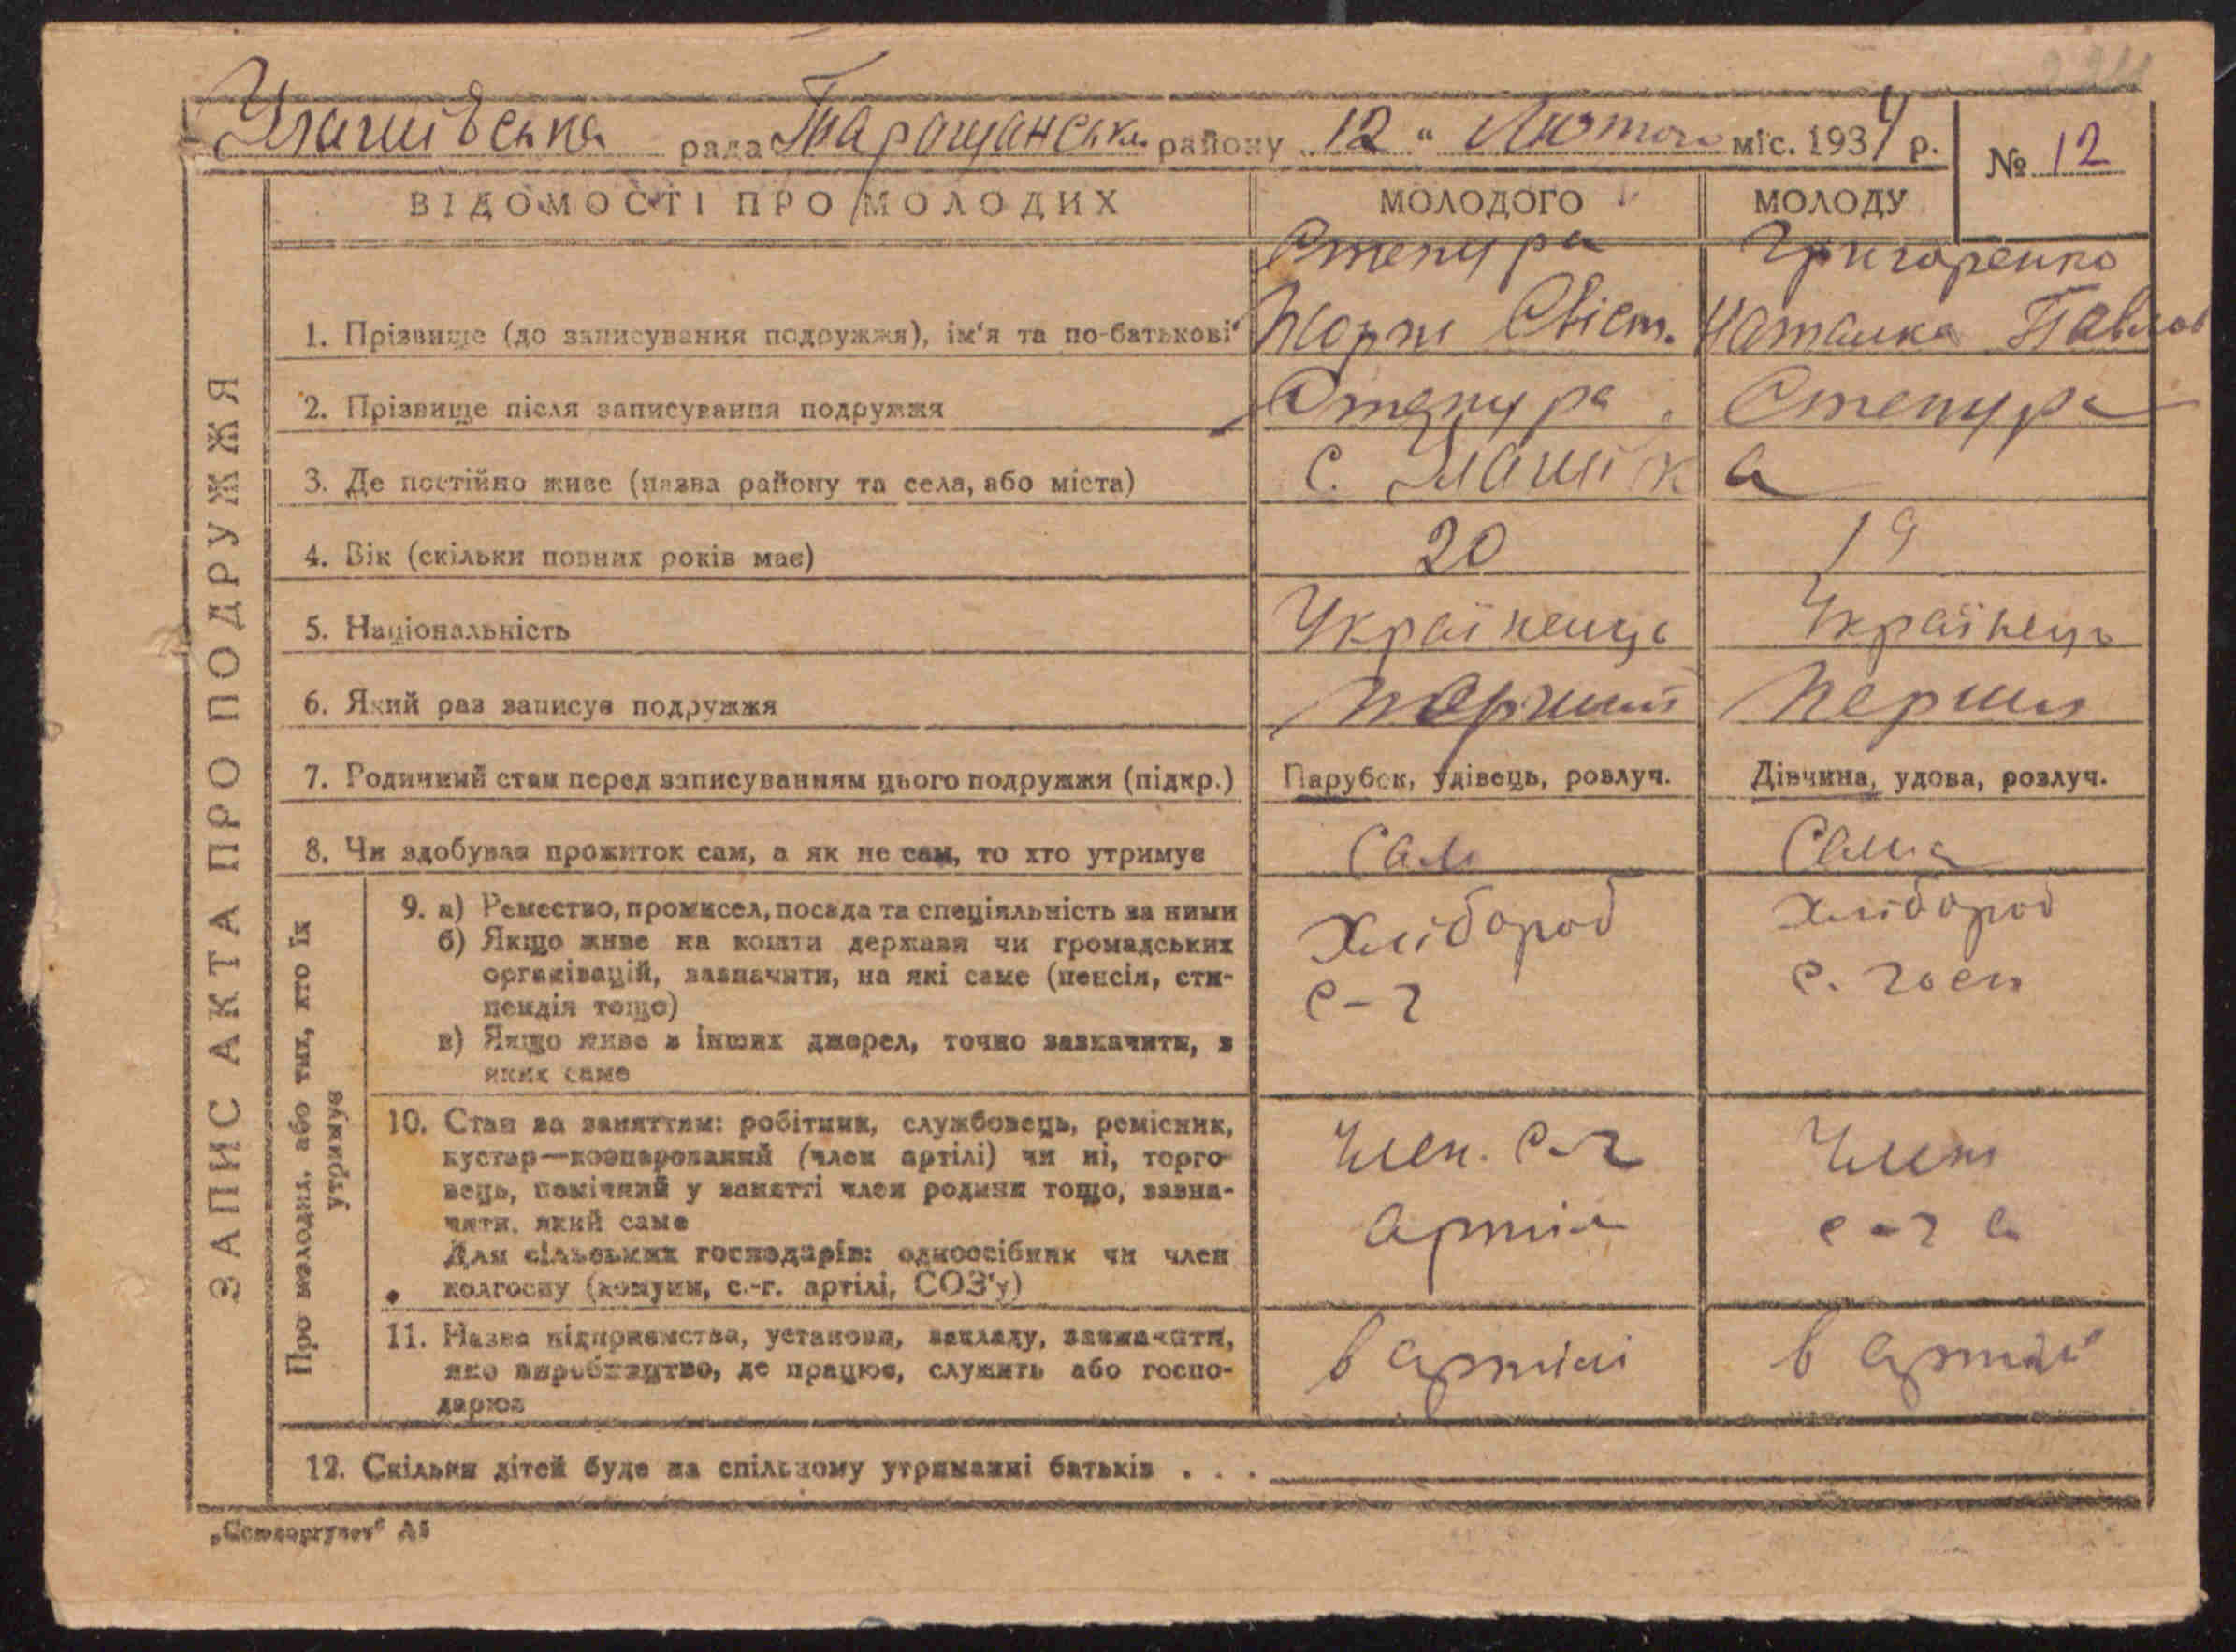 Улашівська рада Таращанськ району 12 " Лютого міс. 1934 р. № 12
ВІДОМОСТІ ПРО МОЛОДИХ МОЛОДОГО МОЛОДУ
ЗАПИС АКТА ПРО ПОДРУЖЖЯ
Степура Григоренко
1. Прізвище (до записування подружжя), ім'я та по-батькові Свіст. Наталка Павлов
2. Прізвище після записування подружжя Степура Степура
3. Де постійно живе (назва району та села, або міста) с. Улашівка
4. Вік (скільки повних років має) 20 19
5. Національність Українець Українець
6. Який раз записує подружжя перший перший
7. Родинний стан перед записуванням цього подружжя (підкр.) Парубок, удівець, розлуч. Дівчина, удова, розлуч.
8. Чи здобував прожиток сам, а як не сам, то хто утримує Сам Сама
Про молодих, або тих, хто їх утримує
9. а) Ремество, промисел, посада та спеціяльність за ними Хлібороб Хлібороб
б) Якщо живе на кошти держави чи громадських
організацій, зазначити, на які саме (пенсія, сти- с-г с. госп
пендія тощо)
в) Якщо живе з інших джерел, точно зазначити, з
яких саме
10. Стан за заняттям: робітник, службовець, ремісник, Член. с-г Член
кустар—кооперований (член артілі) чи ні, торго-
вець, помічний у занятті член родини тощо, зазна-
чити, який саме артіл с-г а
Для сільських господарів: одноосібник чи член
колгоспу (комуни, с.-г. артілі, СОЗ'у)
11. Назва підприємства, установи, закладу, зазначити, в артілі в артілі
яке виробництво, де працює, служить або госпо-
дарює
12. Скільки дітей буде на спільному утриманні батьків . . .